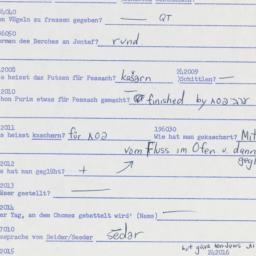 96040
on Vögeln zu fressen gegeben? — QT
96050
ormen des Berches an Jontef? rund.
2008
s heisst das Putzen für Pessach? kašarn 242009 Schittlen? —
2010
hon Purim etwas für Pessach gemacht? finished by פסח
2011
s heisst kaschern? für פסח 196030 Wie hat man gekaschert? Mit
vom Fluss im Ofen u. dann
2012
e hat man geglüht? +
2013
äser gestellt? —
2014
er Tag, an dem Chomez gebettelt wird' (Name) —
7010
ussprache von Seider/Seeder sēdər
2015 242016